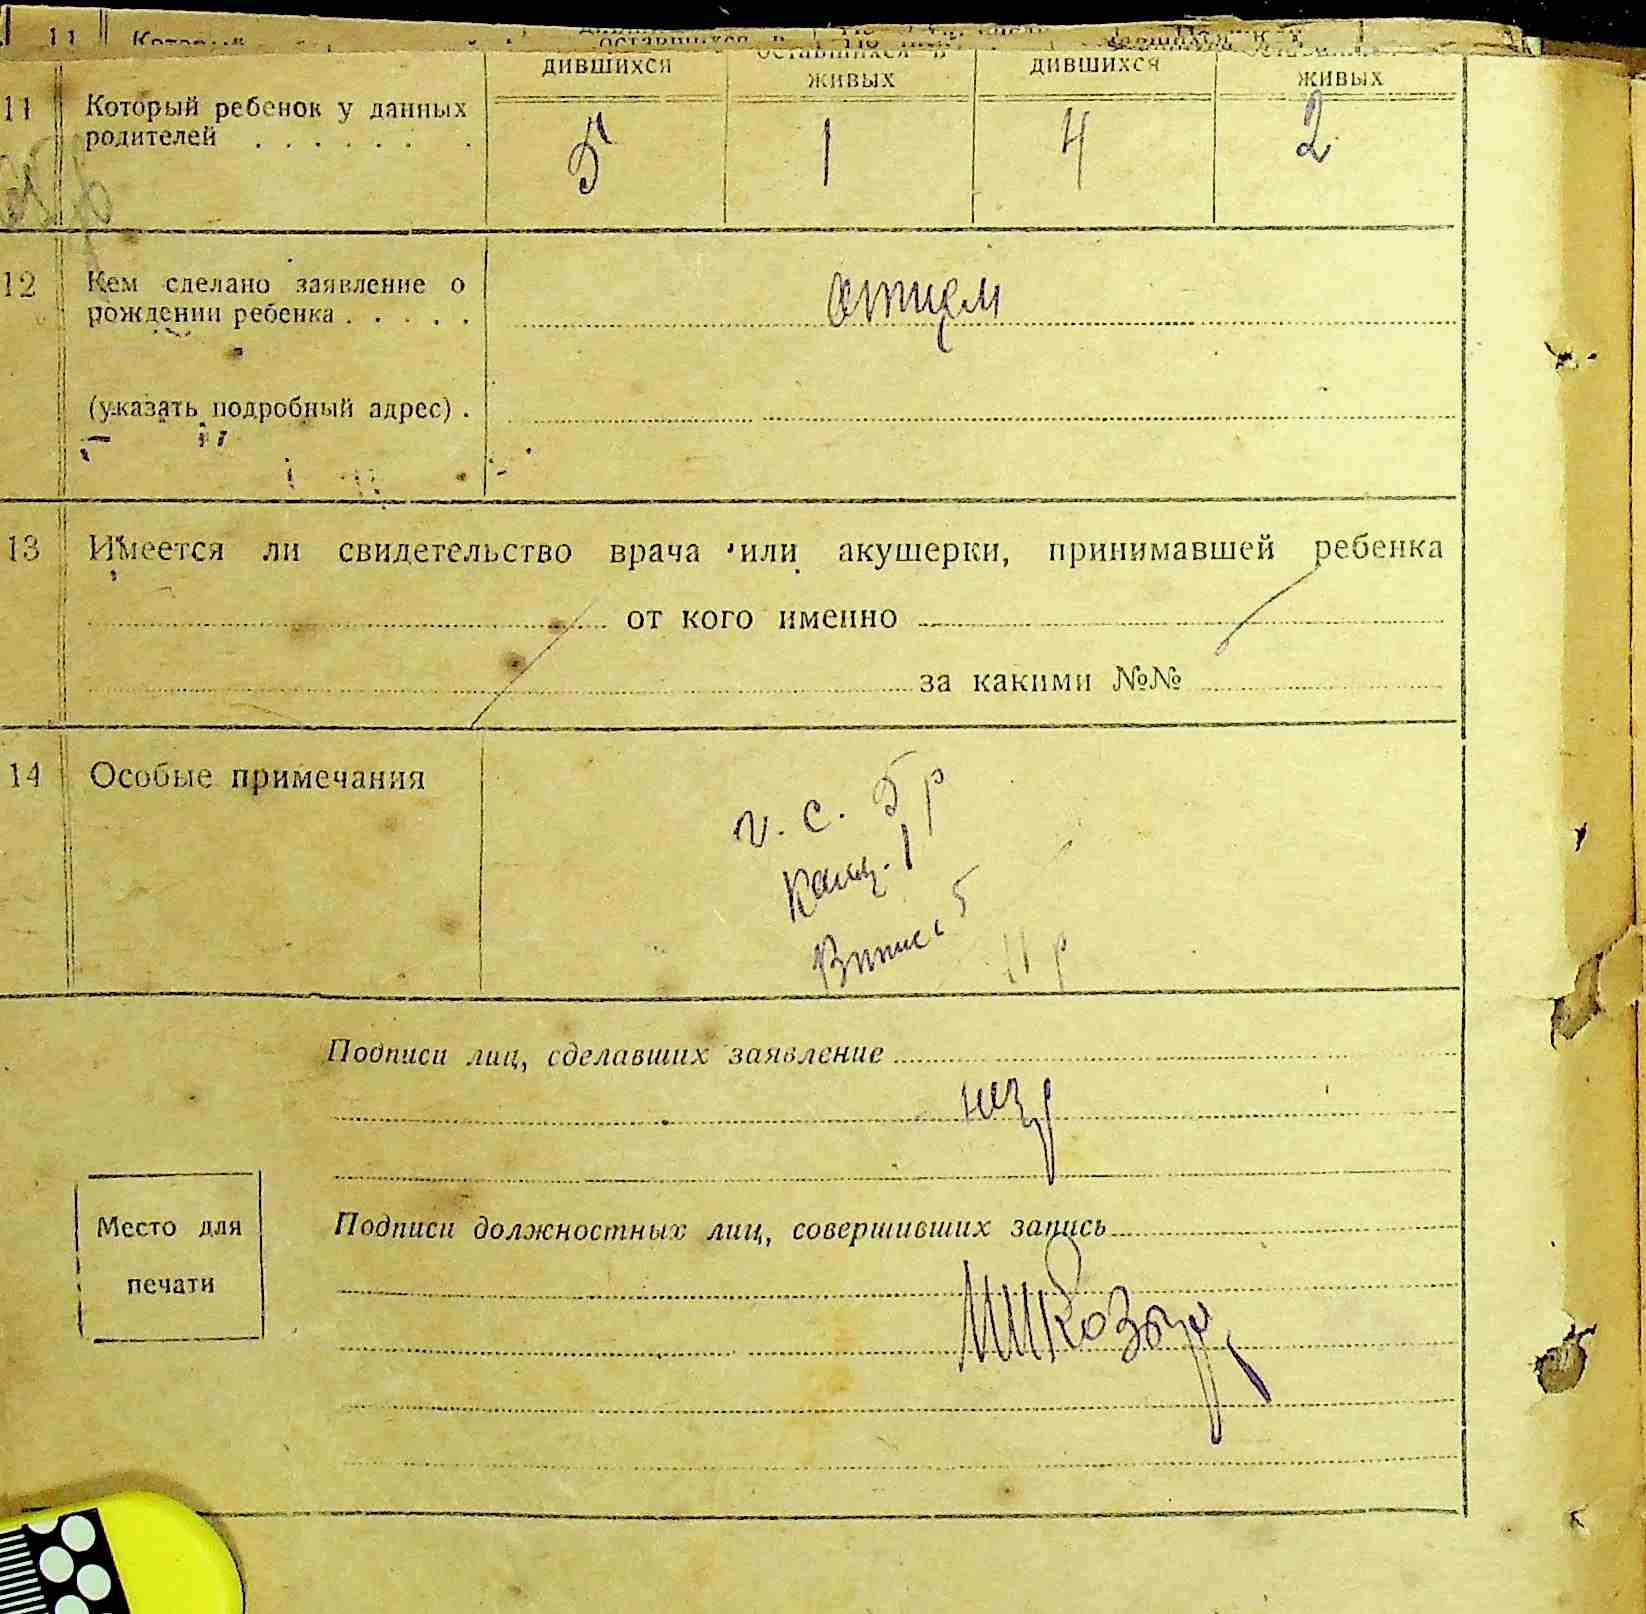 11 Который
дившихся оставшихся в живых дившихся живых
11 Который ребенок у данных
родителей . . . . . . . 5 1 4 2
12 Кем сделано заявление о
рождении ребенка . . . . . отцем
(указать подробный адрес) .
13 Имеется ли свидетельство врача или акушерки, принимавшей ребенка
от кого именно
за какими №№
14 Особые примечания
г. с. 5 р
Канц. 1
5
11 р
Подписи лиц, сделавших заявление
Подписи должностных лиц, совершивших запись
Место для
печати